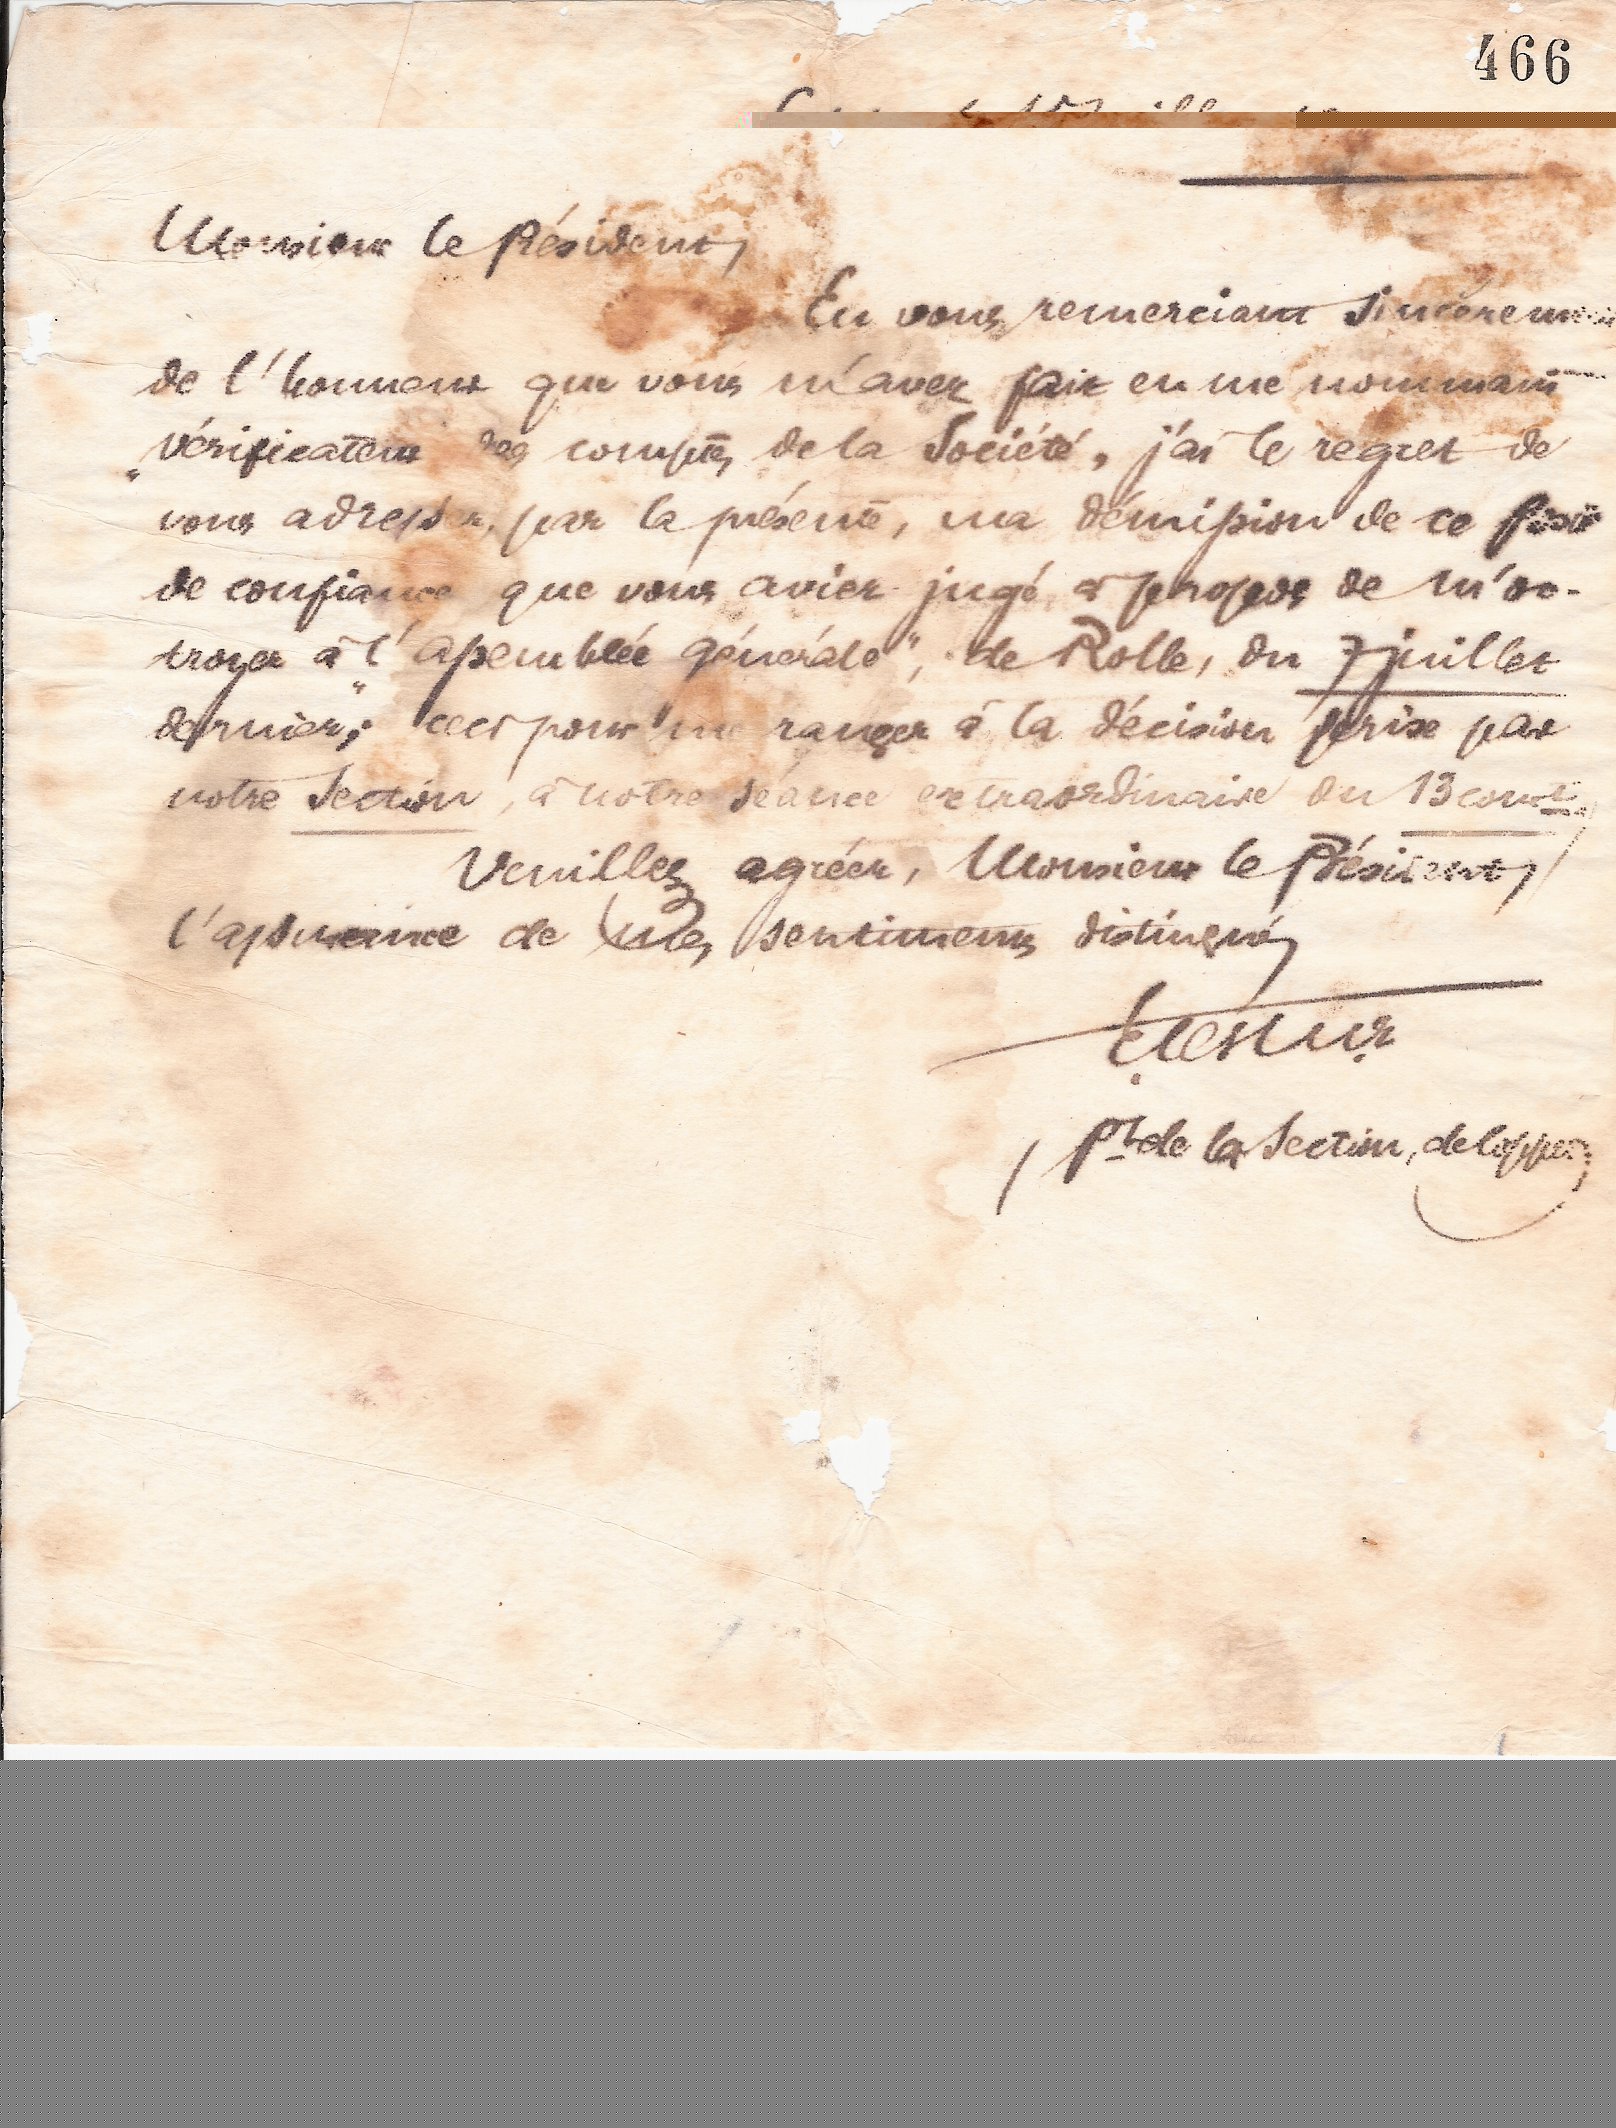 466
Monsieur le Président,
En vous remerciant sincèrement
de l'honneur que vous m'avez fait en me nommant
vérificateur des comptes de la Société, j'ai le regret de
vous adresser, par la présente, ma démission de ce poste
de confiance que vous aviez jugé à propos de m'oc-
troyer à l'"assemblée générale", de Rolle, du 7 juillet
dernier; ceci pour me ranger à la décision prise par
notre Section, à notre séance extraordinaire du 13 court.
Veuillez agréer, Monsieur le Président,
l'assurance de mes sentiments distingués
Pt. de la Section, de